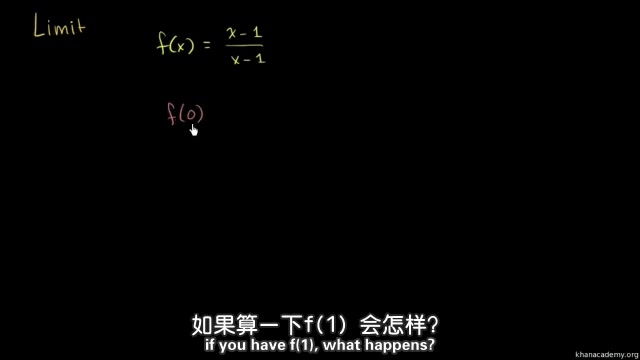 Limit
f(x) = x-1 / x-1
f(0)
如果算一下f(1) 会怎样?
if you have f(1), what happens?
khanacademy.org